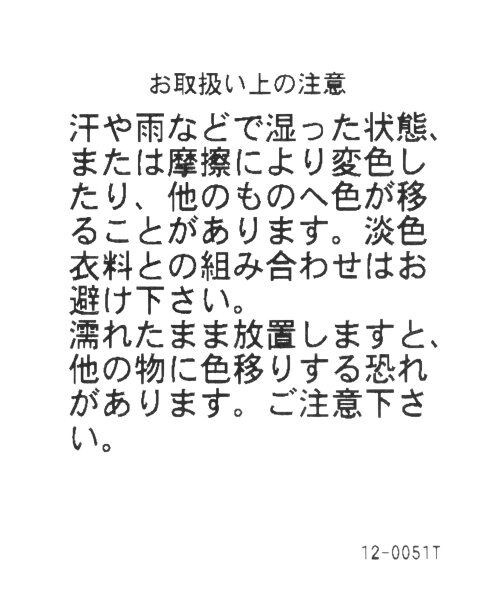 お取扱い上の注意
汗や雨などで湿った状態、
または摩擦により変色し
たり、他のものへ色が移
ることがあります。淡色
衣料との組み合わせはお
避け下さい。
濡れたまま放置しますと、
他の物に色移りする恐れ
があります。ご注意下さ
い。
12-0051T